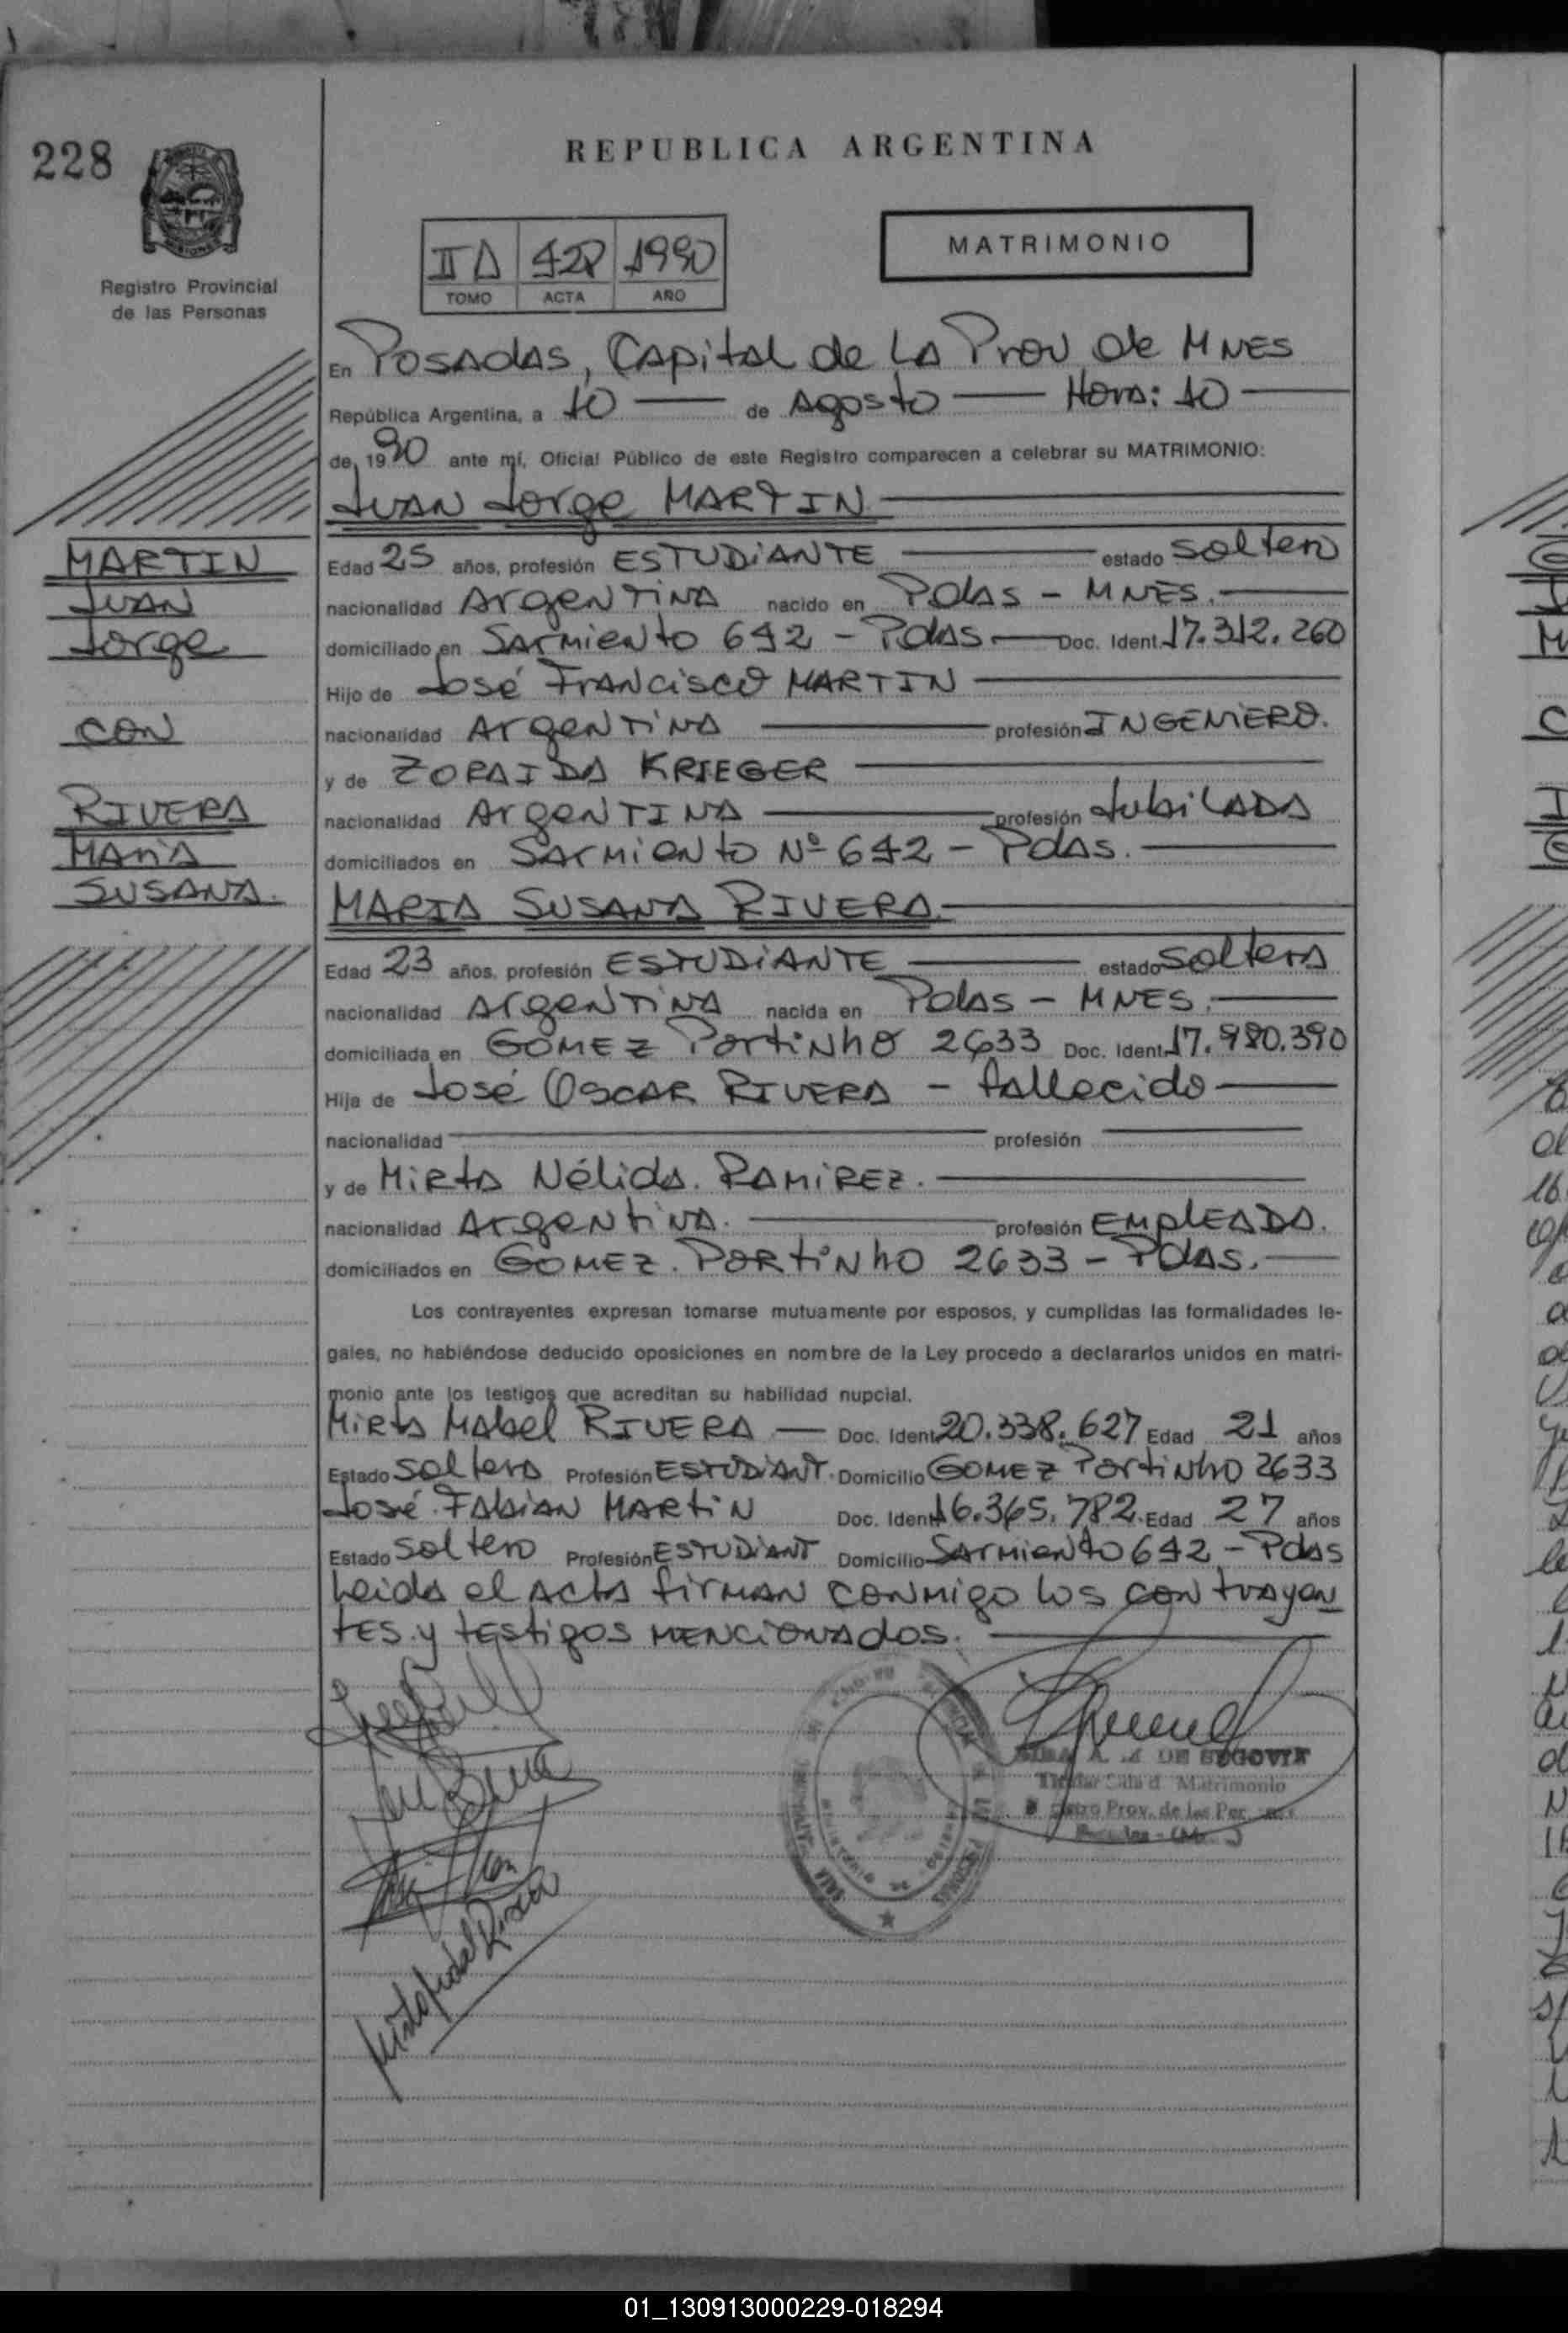 228
REPUBLICA ARGENTINA
Registro Provincial
de las Personas
II A 428 1990
TOMO ACTA AÑO
MATRIMONIO
En Posadas, Capital de La Prov de MNES
República Argentina, a 10 de Agosto Hora: 10
de 1990 ante mí, Oficial Público de este Registro comparecen a celebrar su MATRIMONIO:
Juan Jorge MARTIN
MARTIN
Juan
Jorge
con
RIVERA
María
SUSANA.
Edad 25 años, profesión ESTUDiANTE estado soltero
nacionalidad Argentina nacido en Pdas - MNES.
domiciliado en Sarmiento 642 - Pdas Doc. Ident. 17.312.260
Hijo de José Francisco MARTIN
nacionalidad Argentina profesión INGENIERO.
y de ZORAIDA KRIEGER
nacionalidad Argentina profesión Jubilada
domiciliados en Sarmiento Nº 642 - Pdas.
MARIA SUSANA RIVERA.
Edad 23 años, profesión ESTUDiANTE estado soltera
nacionalidad Argentina nacida en Pdas - MNES.
domiciliada en GOMEZ Portinho 2633 Doc. Ident. 17.980.390
Hija de José Oscar RIVERA - fallecido
nacionalidad profesión
y de Mirta Nélida. RAMIREZ.
nacionalidad Argentina. profesión EMPLEADA.
domiciliados en GOMEZ. Portinho 2633 - Pdas.
Los contrayentes expresan tomarse mutuamente por esposos, y cumplidas las formalidades le-
gales, no habiéndose deducido oposiciones en nombre de la Ley procedo a declararlos unidos en matri-
monio ante los testigos que acreditan su habilidad nupcial.
Mirta Mabel RIVERA Doc. Ident. 20.338.627 Edad 21 años
Estado soltera Profesión ESTUDIANT. Domicilio GOMEZ Portinho 2633
José Fabian MARTIN Doc. Ident. 16.365.782 Edad 27 años
Estado soltero Profesión ESTUDIANT Domicilio Sarmiento 642 - Pdas
Leida el acta firman conmigo los contrayen
tes y testigos mencionados.
DE SEGOVIA
Titular Sala d. Matrimonio
Prov. de las Per
Mirta Mabel Rivera
01_130913000229-018294